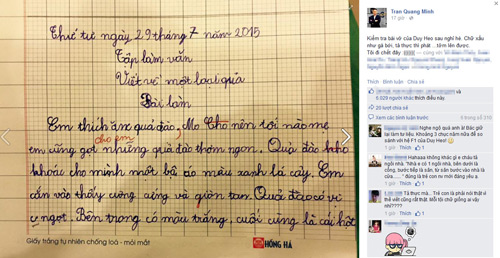 Thứ tư ngày 29 tháng 7 năm 2015
Tập làm văn
Viết về một loại quả
Bài làm
Em thích ăn quả đào, Mo Cho nên tối nào mẹ
cho em
em cũng gọt những quả đào thơm ngon. Quả đào kho
khoác cho mình một bộ áo màu xanh lá cây. Em
cắn vào thấy cưng cứng và giòn tan. Quả đào có vị
ngọt. Bên trong có màu trắng, cuối cùng là cái hột
Giấy trắng tự nhiên chống loá - mỏi mắt
HỒNG HÀ
Tran Quang Minh
17 giờ
Kiểm tra bài vở của Duy Heo sau nghỉ hè. Chữ xấu
như gà bới, tả thực thì phát ...tởm lên được.
Tôi đi chết đây
Thích · Bình luận · Chia sẻ
5.029 người khác thích điều này.
20 lượt chia sẻ
Xem các bình luận trước
Nghe ngõ quá anh ạ! Bác giỡ
lại làm tư liệu. Khoảng 3 chục năm nữa để so
sánh với hệ F1 của Duy Heo
Thích
Hahaaa không khác gì e cháu tả
ngôi nhà. "Nhà e có 1 ngôi nhà, bên dưới là
cổng, bước tiếp là sân, từ sân bước vào nhà là
cửa ......" đúng là trẻ con nv mới đáng yêu a
Thích
Tả thực mà.. Trẻ con là phải nói thật vì
thế viết cũng rất thật. Mỗi tôi chữ giống ai vậy
nhỉ????
Thích